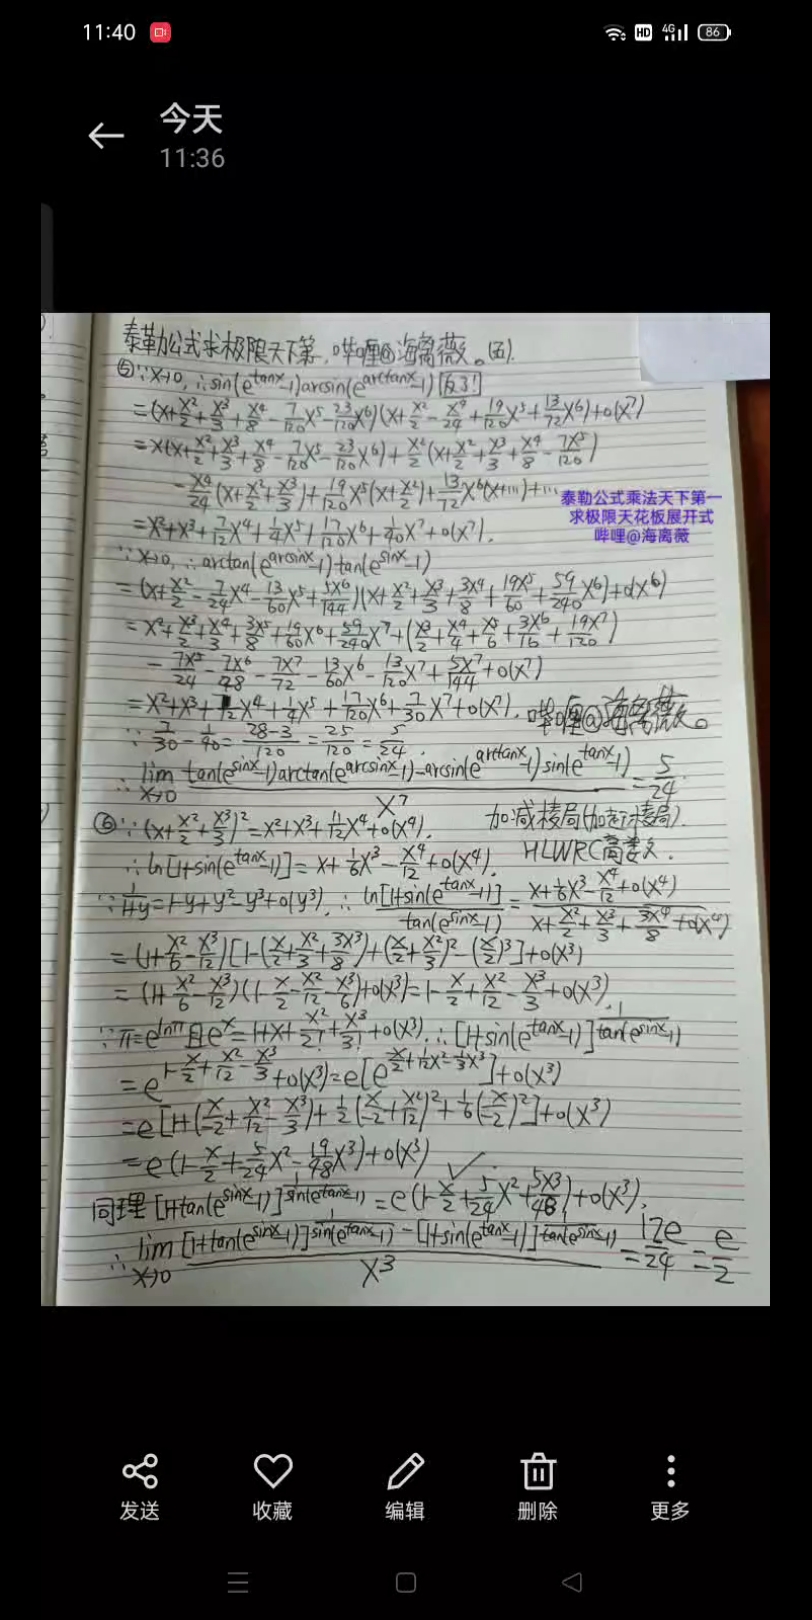 11:40
HD 4G 86
今天
11:36
泰勒公式求极限天下第一,哔哩@海离薇。(五).
⑤∵x→0, ∴sin(e^{tanx}-1)arcsin(e^{arctanx}-1) [反了!]
=(x+x²/2+x³/3+x⁴/8-7/120x⁵-23/120x⁶)(x+x²/2-x⁴/24+19/120x⁵+13/72x⁶)+o(x⁷)
=x(x+x²/2+x³/3+x⁴/8-7/120x⁵-23/120x⁶)+x²/2(x+x²/2+x³/3+x⁴/8-7x⁵/120)
-x⁴/24(x+x²/2+x³/3)+19/120x⁵(x+x²/2)+13/72x⁶(x+…)+…
泰勒公式乘法天下第一
求极限天花板展开式
哔哩@海离薇
=x²+x³+7/12x⁴+1/4x⁵+17/120x⁶+1/40x⁷+o(x⁷).
∵x→0, ∴arctan(e^{arcsinx}-1)tan(e^{sinx}-1)
=(x+x²/2-7/24x⁴-13/60x⁵+5x⁶/144)(x+x²/2+x³/3+3x⁴/8+19x⁵/60+59/240x⁶)+o(x⁶)
=x²+x³/2+x⁴/3+3x⁵/8+19/60x⁶+59/240x⁷+(x³/2+x⁴/4+x⁵/6+3x⁶/16+19x⁷/120)
-7x⁵/24-7x⁶/48-7x⁷/72-13/60x⁶-13/120x⁷+5x⁷/144+o(x⁷)
=x²+x³+7/12x⁴+1/4x⁵+17/120x⁶+7/30x⁷+o(x⁷). 哔哩@海离薇。
∵7/30-1/40=28-3/120=25/120=5/24.
∴lim x→0 tan(e^{sinx}-1)arctan(e^{arcsinx}-1)-arcsin(e^{arctanx}-1)sin(e^{tanx}-1)/x⁷=5/24.
⑥∵(x+x²/2+x³/3)²=x²+x³+11/12x⁴+o(x⁴). 加减棱局(加起棱局).
∴ln[1+sin(e^{tanx}-1)]=x+1/6x³-x⁴/12+o(x⁴). HLWRC高等数学.
∵1/1+y=1-y+y²-y³+o(y³), ∴ln[1+sin(e^{tanx}-1)]/tan(e^{sinx}-1)=x+1/6x³-x⁴/12+o(x⁴)/x+x²/2+x³/3+3x⁴/8+o(x⁴)
=(1+x²/6-x³/12)[1-(x/2+x²/3+3x³/8)+(x/2+x²/3)²-(x/2)³]+o(x³)
=(1+x²/6-x³/12)(1-x/2-x²/12-x³/6)+o(x³)=1-x/2+x²/12-x³/3+o(x³).
∵π=e^{lnπ}且e^x=1+x+x²/2!+x³/3!+o(x³). ∴[1+sin(e^{tanx}-1)]^{1/tan(e^{sinx}-1)}
=e^{1-x/2+x²/12-x³/3}+o(x³)=e[e^{x/-2+1/12x²-1/3x³}]+o(x³)
=e[1+(x/-2+x²/12-x³/3)+1/2(x/-2+x²/12)²+1/6(x/-2)²]+o(x³)
=e(1-x/2+5/24x²-19/48x³)+o(x³)
同理[1+tan(e^{sinx}-1)]^{1/sin(e^{tanx}-1)}=e(1-x/2+5/24x²+5x³/48)+o(x³).
∴lim x→0 [1+tan(e^{sinx}-1)]^{1/sin(e^{tanx}-1)}-[1+sin(e^{tanx}-1)]^{1/tan(e^{sinx}-1)}/x³=12e/24=e/2
发送 收藏 编辑 删除 更多